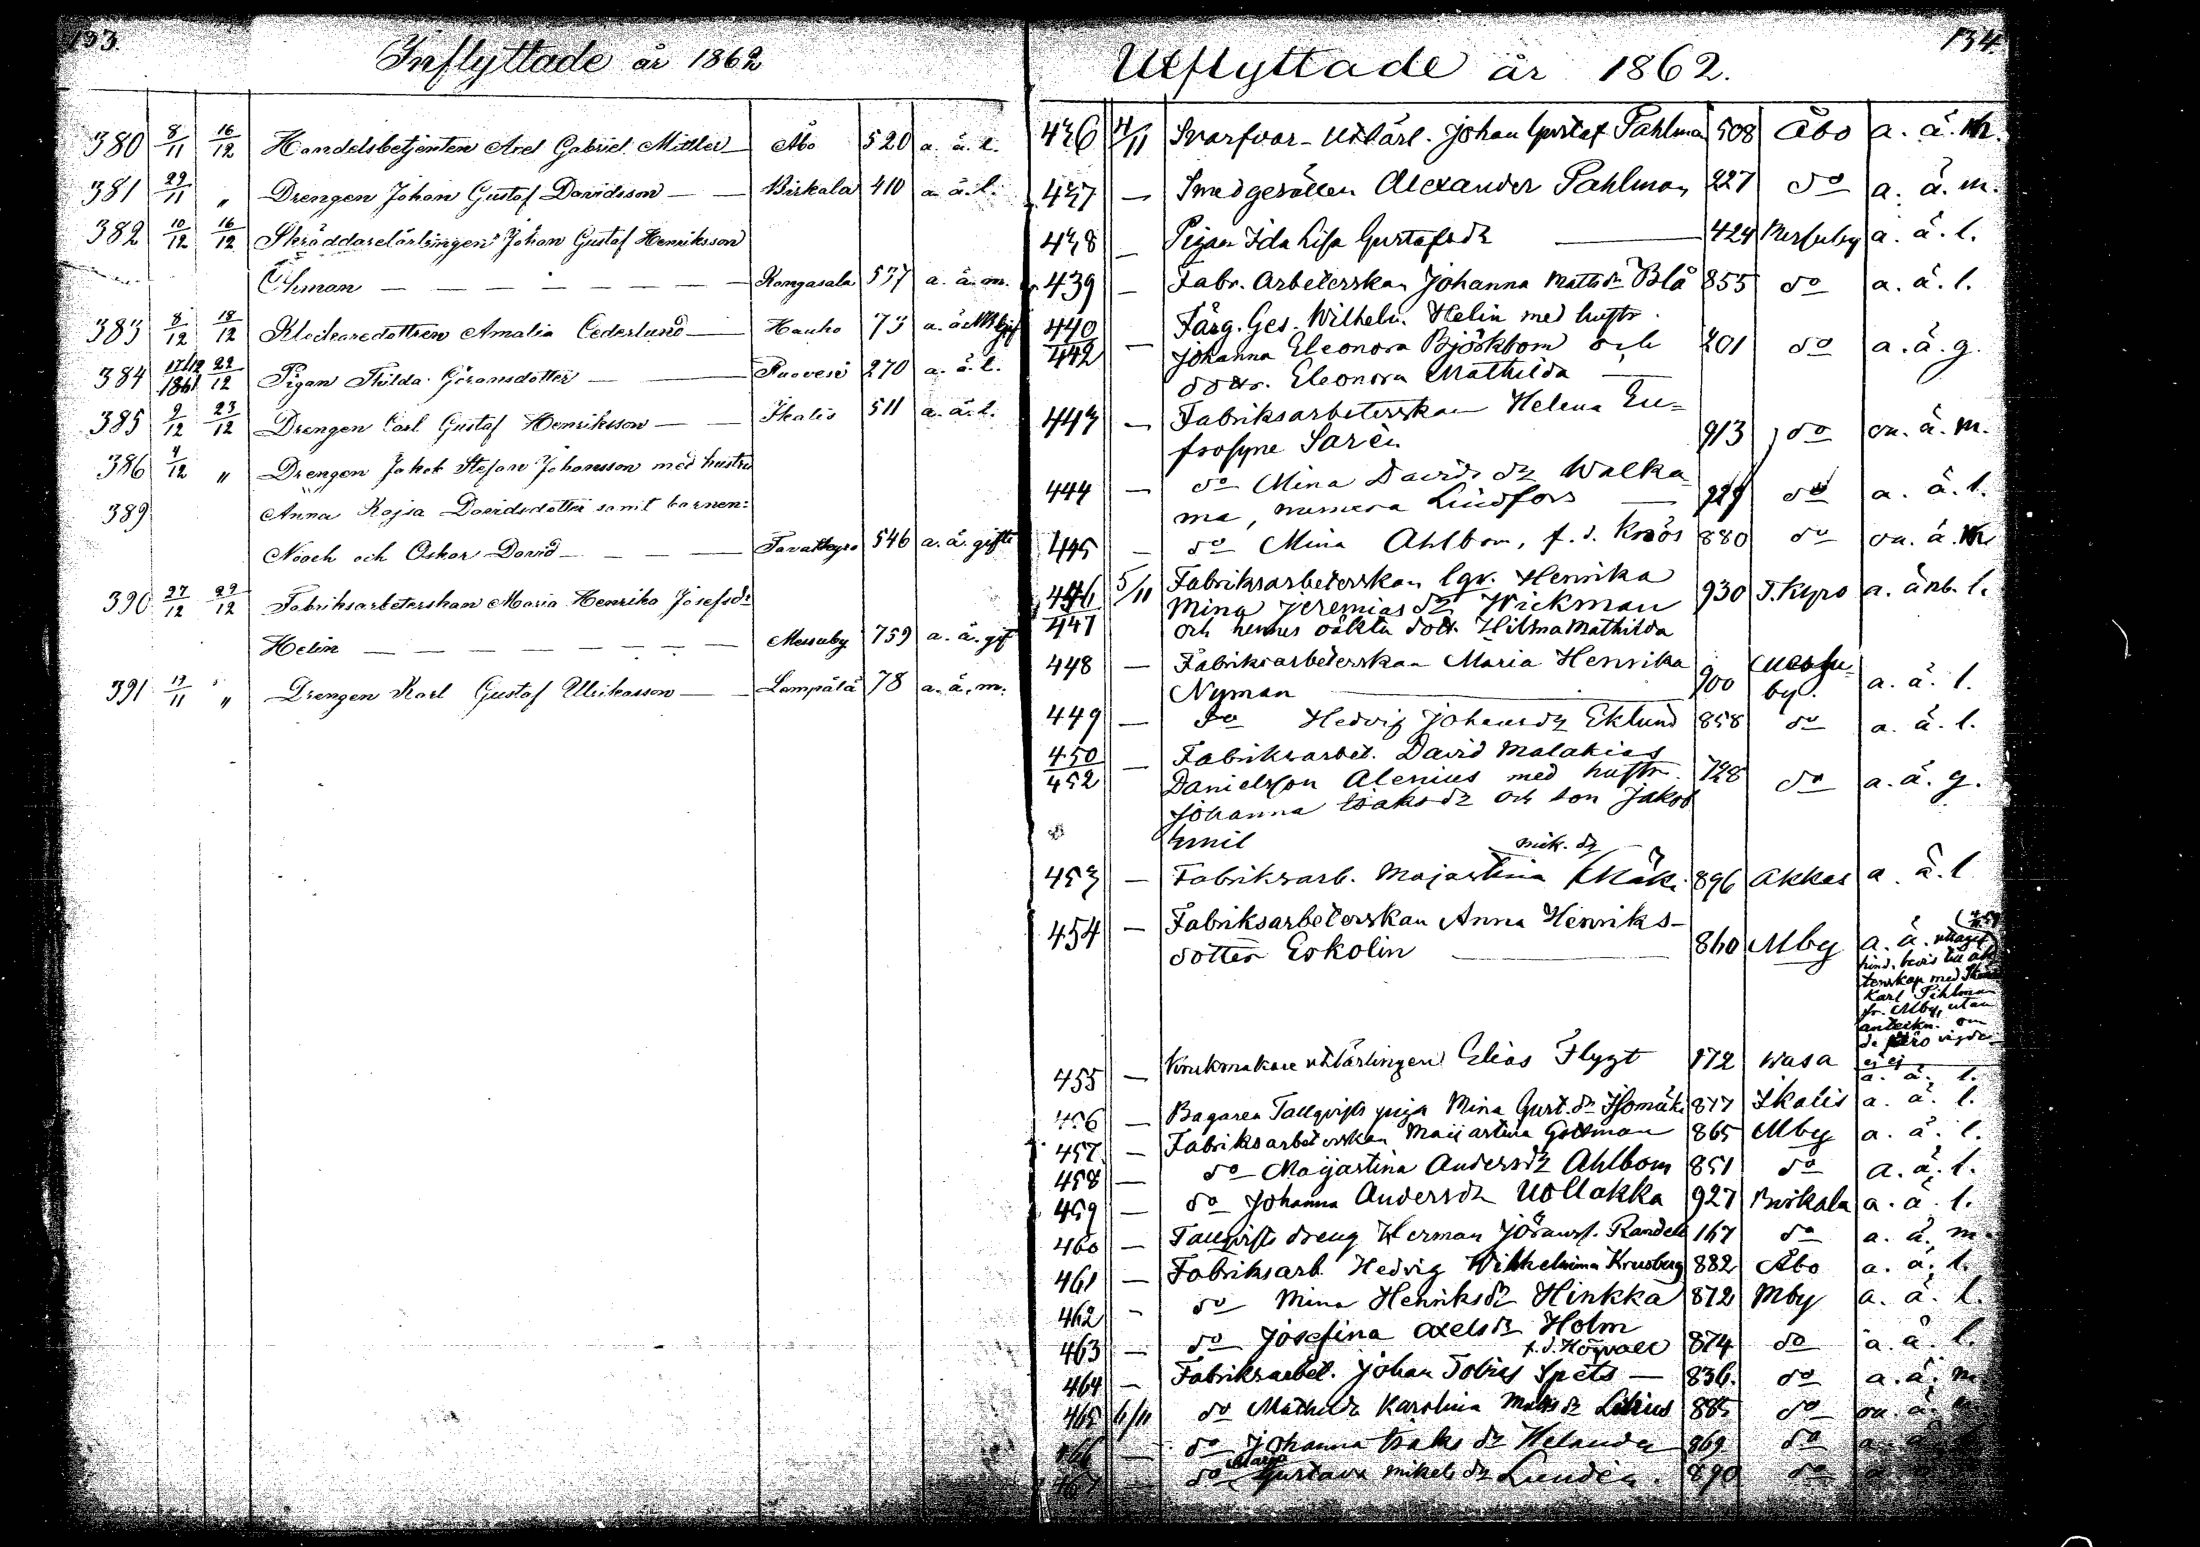 133
Inflyttade år 1862
380 8/11 16/12 Handelsbetjenten Axel Gabriel Mittler — Åbo 520 a. ä. l.
381 29/11 „ Drengen Johan Gustaf Davidsson — — Birkala 410 a. ä. l.
382 10/12 16/12 Skräddarelärlingen Johan Gustaf Henriksson
Öhman — — — — — — — Kangasala 537 a. ä. m.
383 8/12 18/12 Klockaredottren Amalia Cederlund — Hauho 73 a. ä.
384 17/12 1861 22/12 Pigan Thilda Göransdotter — — Ruovesi 270 a. ä. l.
385 9/12 23/12 Drengen Carl Gustaf Henriksson — — Ikalis 511 a. ä. l.
386 4/12 „ Drengen Jakob Stefan Johansson med hustru
389 Anna Kajsa Davidsdotter samt barnen:
Noach och Oskar David — — — Tavastkyro 546 a. ä. gifte
390 27/12 29/12 Fabriksarbeterskan Maria Henrika Josefsdr
Helin — — — — — — — Messuby 759 a. ä. gift
391 19/11 „ Drengen Karl Gustaf Ulrikasson — — Lempälä 78 a. ä. m.
134
Utflyttade år 1862.
436 4/11 Svarfvar-utlärl. Johan Gustaf Pahlman 508 Åbo a. ä. m.
437 — Smedgesällen Alexander Pahlman 227 do a. ä. m.
438 — Pigan Ida Lisa Gustafsdr — 424 Messuby a. ä. l.
439 — Fabr. Arbeterskan Johanna Mattsdr Blå 855 do a. ä. l.
440 Färg. Ges. Wilhelm Helin med hustr.
442 — Johanna Eleonora Björkbom och 201 do a. ä. g.
dottr. Eleonora Mathilda —
443 — Fabriksarbeterskan Helena Eu=
frosyne Sarén 913 do oa. ä. m.
444 — do Mina Davidsdr Walka
ma, numera Lindfors — 929 do a. ä. l.
445 — do Mina Ahlbom, f. d. Kroös 880 do oa. ä.
446 5/11 Fabriksarbeterskan lgv. Henrika
Mina Jeremiasdr Wickman 930 T.Kyro a. ä nb. l.
447 och hennes oäkta dotr. Hilma Mathilda
448 — Fabriksarbeterskan Maria Henrika
Nyman — 900 Messu-
by. a. ä. l.
449 — do Hedvig Johansdr Eklund 858 do a. ä. l.
450 — Fabriksarbet. David Malakias
452 Danielsson Alenius med hustr. 728 do a. ä. g.
Johanna Isaksdr och son Jakob
Emil
mik. dr
453 — Fabriksarb. Majastina Mäki 896 Akkas a. ä. l
454 — Fabriksarbeterskan Anna Henriks-
dotter Eskolin — 860 Mby a. ä. uttaget
hind. bevis till äk
tenskap med
Karl Pihlman
fr. Mby, utan
anteckn. om
de äro vigde
ej ej
455 — Krukmakare utlärlingen Elias Flygt 172 Wasa a. ä. l.
456 — Bagaren Tallqvists piga Mina Gust.dr Isomäki 877 Ikalis a. ä. l.
457 — Fabriksarbeterskan Maijastina Gottman 865 Mby a. ä. l.
458 — do Maijastina Andersdr Ahlbom 851 do a. ä. l.
459 — do Johanna Andersdr Uollakka 927 Birkala a. ä. l.
460 — Tallqvists dreng Herman Jöransf. Randell 167 do a. ä. m.
461 — Fabriksarb. Hedvig Wilhelmina Krusberg 882 Åbo a. ä. l.
462 — do Mina Henriksdr Hinkka 872 Mby a. ä. l.
463 — do Josefina Axelsdr Holm
f. d. 874 do a. ä. l.
464 — Fabriksarbet. Johan Tobias Spets — 836. do a. ä. m
465 6/11 do Mathilda Karolina Mattsdr 885 do oa. ä.
466 — do Johanna Isaksdr Helander 869 do a.
467 — do Maria Gustava Mikelsdr Lundén. 890 do